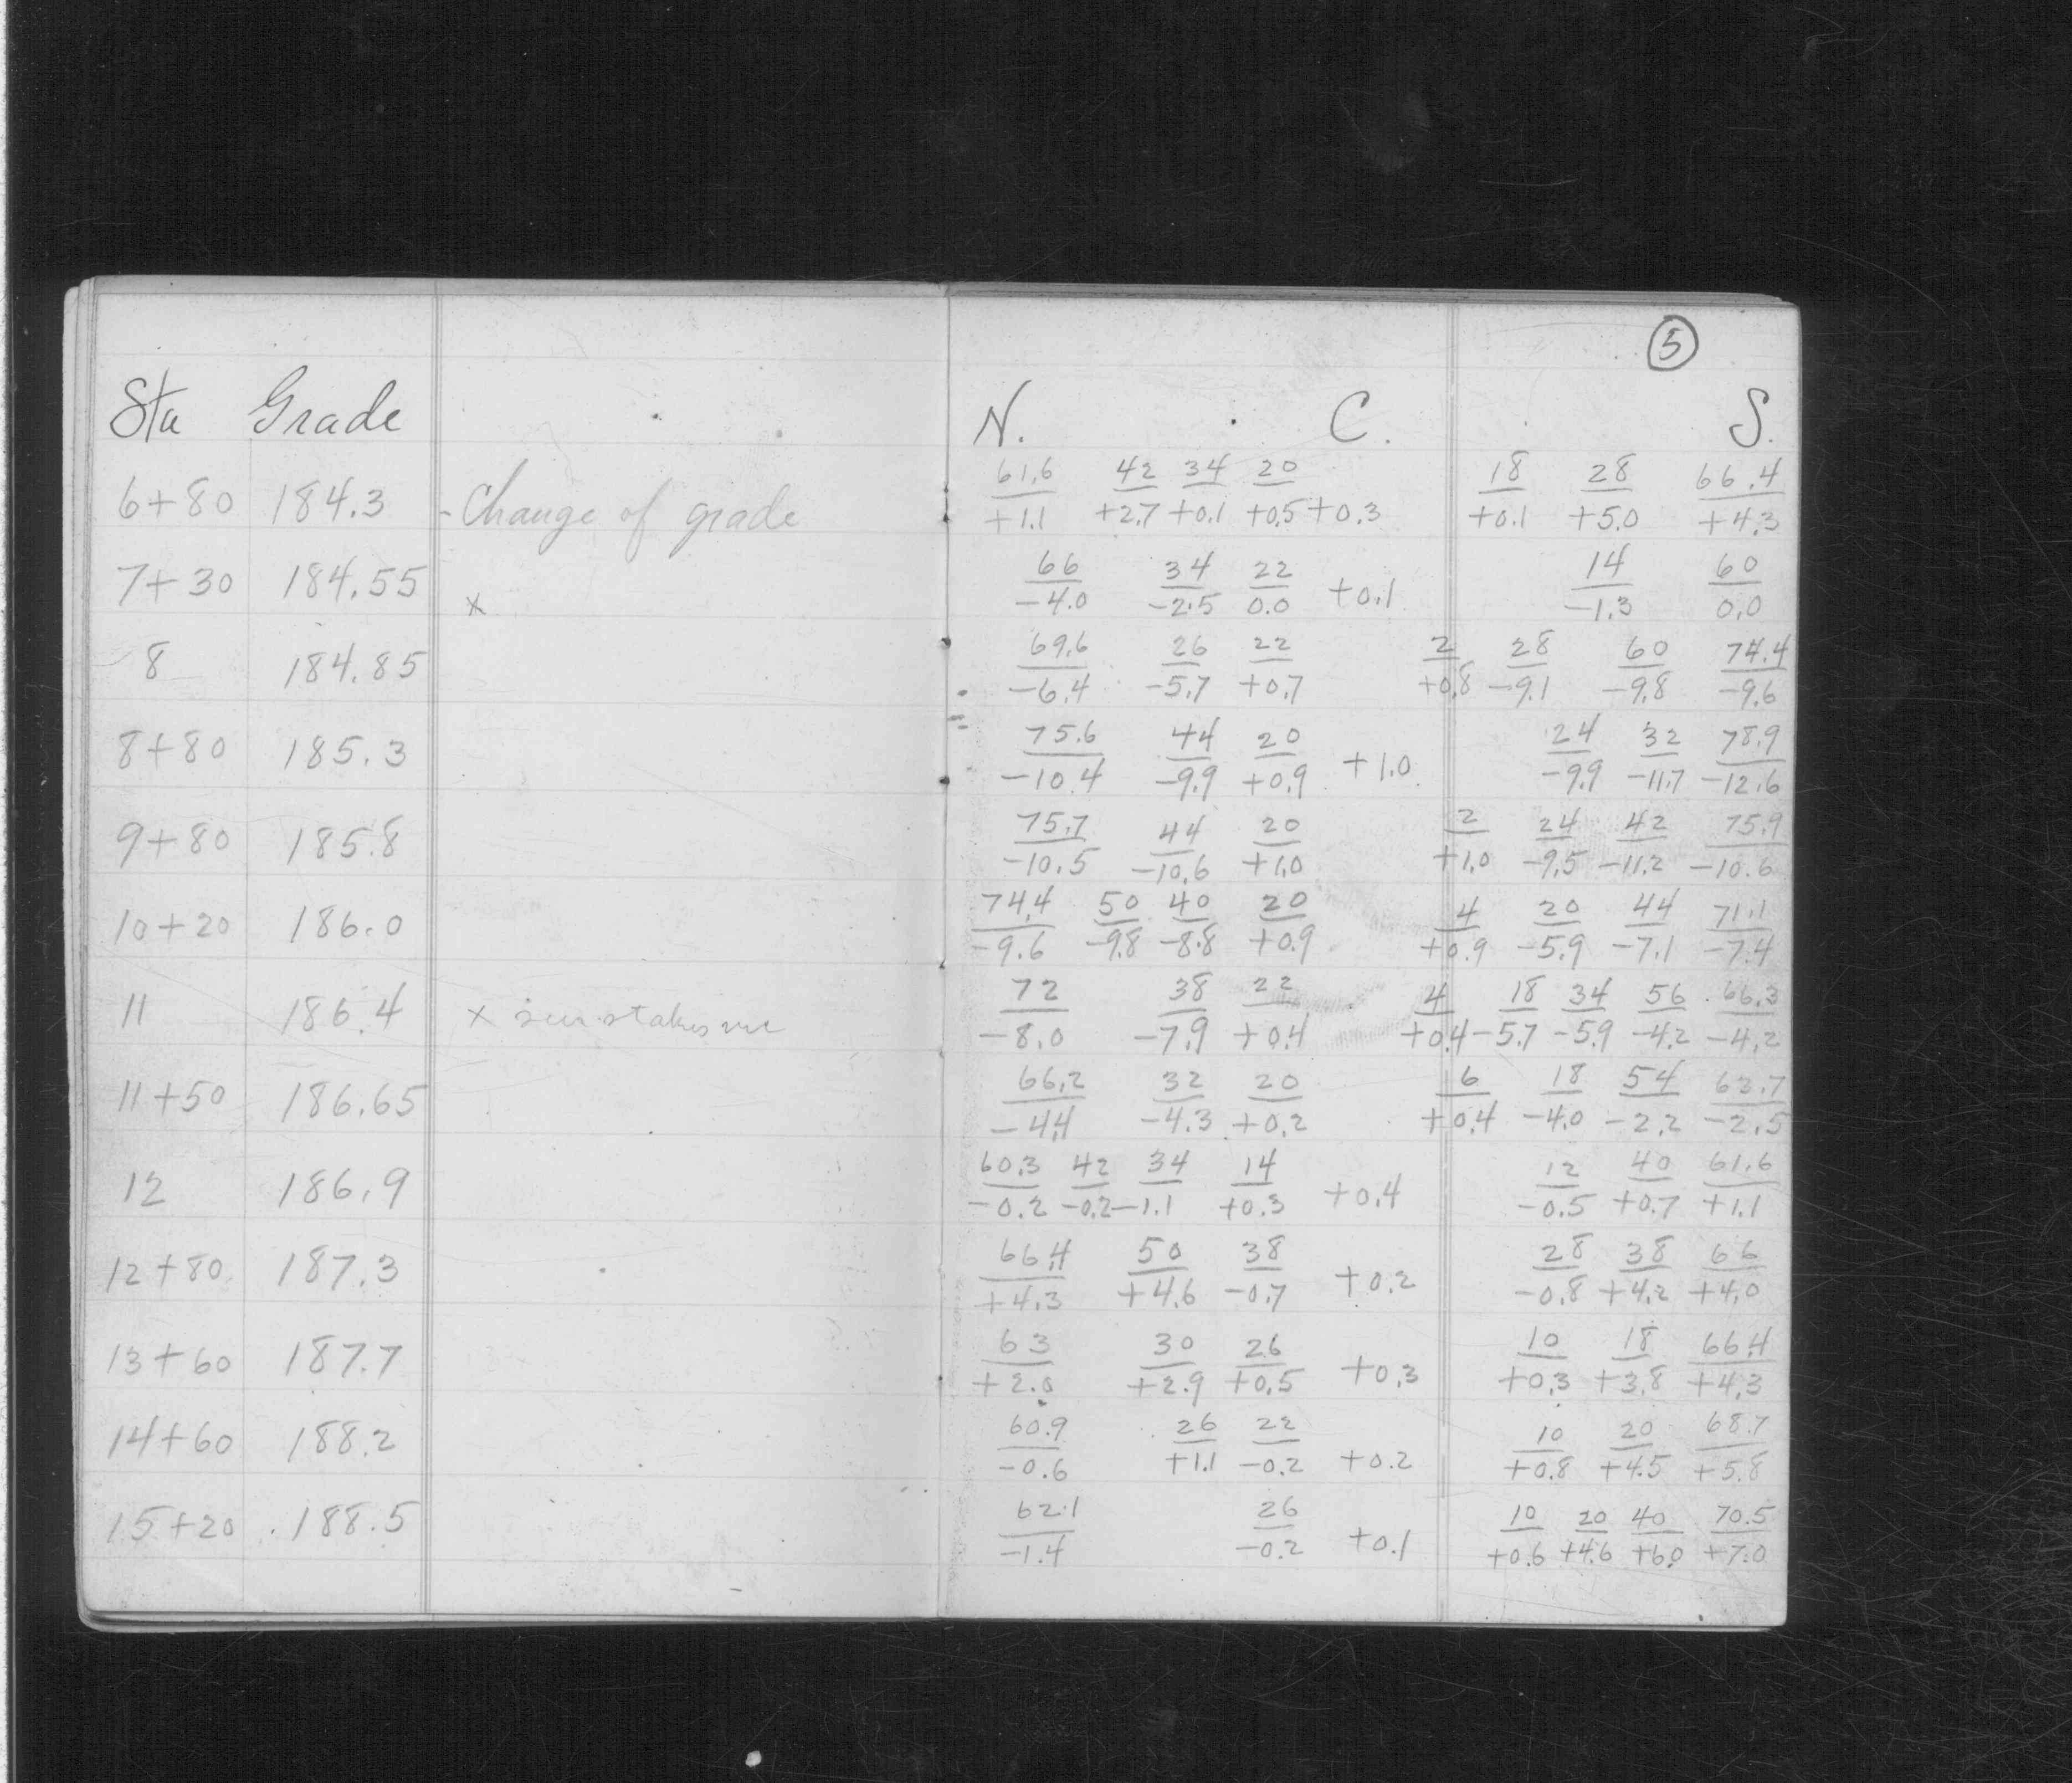 5
Sta Grade N. C. S.
6+80 184.3 - Change of grade 61.6/+1.1 42/+2.7 34/+0.1 20/+0.5 +0.3 18/+0.1 28/+5.0 66.4/+4.3
7+30 184.55 x 66/-4.0 34/-2.5 22/0.0 +0.1 14/-1.3 60/0.0
8 184.85 69.6/-6.4 26/-5.7 22/+0.7 2/+0.8 28/-9.1 60/-9.8 74.4/-9.6
8+80 185.3 75.6/-10.4 44/-9.9 20/+0.9 +1.0 24/-9.9 32/-11.7 78.9/-12.6
9+80 185.8 75.7/-10.5 44/-10.6 20/+1.0 2/+1.0 24/-9.5 42/-11.2 75.9/-10.6
10+20 186.0 74.4/-9.6 50/-9.8 40/-8.8 20/+0.9 4/+0.9 20/-5.9 44/-7.1 71.1/-7.4
11 186.4 x 72/-8.0 38/-7.9 22/+0.4 4/+0.4 18/-5.7 34/-5.9 56/-4.2 66.3/-4.2
11+50 186.65 66.2/-4.4 32/-4.3 20/+0.2 6/+0.4 18/-4.0 54/-2.2 62.7/-2.5
12 186.9 60.3/-0.2 42/-0.2 34/-1.1 14/+0.3 +0.4 12/-0.5 40/+0.7 61.6/+1.1
12+80 187.3 66.4/+4.3 50/+4.6 38/-0.7 +0.2 28/-0.8 38/+4.2 66/+4.0
13+60 187.7 63/+2.0 30/+2.9 26/+0.5 +0.3 10/+0.3 18/+3.8 66.4/+4.3
14+60 188.2 60.9/-0.6 26/+1.1 22/-0.2 +0.2 10/+0.8 20/+4.5 68.7/+5.8
15+20 188.5 62.1/-1.4 26/-0.2 +0.1 10/+0.6 20/+4.6 40/+6.0 70.5/+7.0